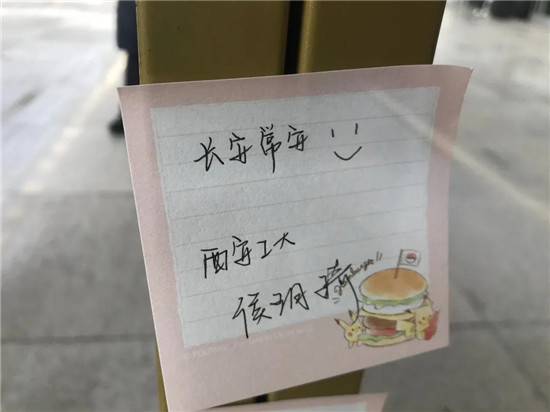 长安常安
西安工大
侯玥
Hamburger!!